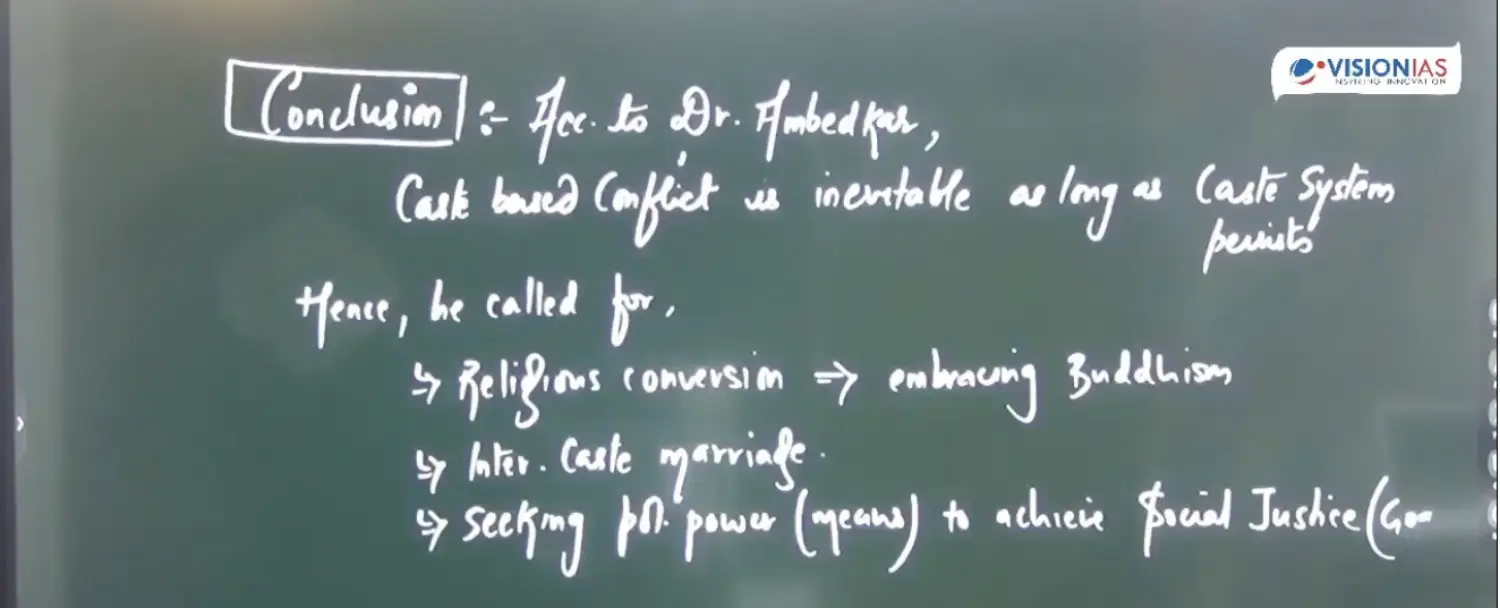 VISIONIAS
INSPIRING INNOVATION
Conclusion :- Acc. to Dr. Ambedkar,
Caste based Conflict is inevitable as long as Caste System
persists
Hence, he called for,
↳ Religious conversion ⇒ embracing Buddhism
↳ Inter. Caste marriage.
↳ Seeking pol. power (means) to achieve Social Justice (Go